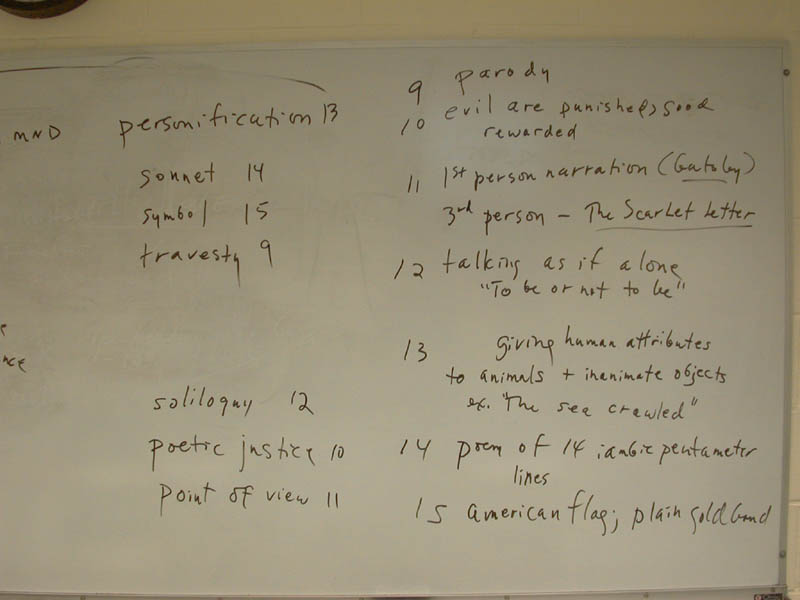 MND
personification 13
sonnet 14
symbol 15
travesty 9
nce
soliloquy 12
poetic justice 10
point of view 11
9 parody
10 evil are punished, good
rewarded
11 1st person narration (Gatsby)
3rd person - The Scarlet Letter
12 talking as if alone
"To be or not to be"
13 giving human attributes
to animals + inanimate objects
ex. "The sea crawled"
14 poem of 14 iambic pentameter
lines
15 american flag; plain gold band